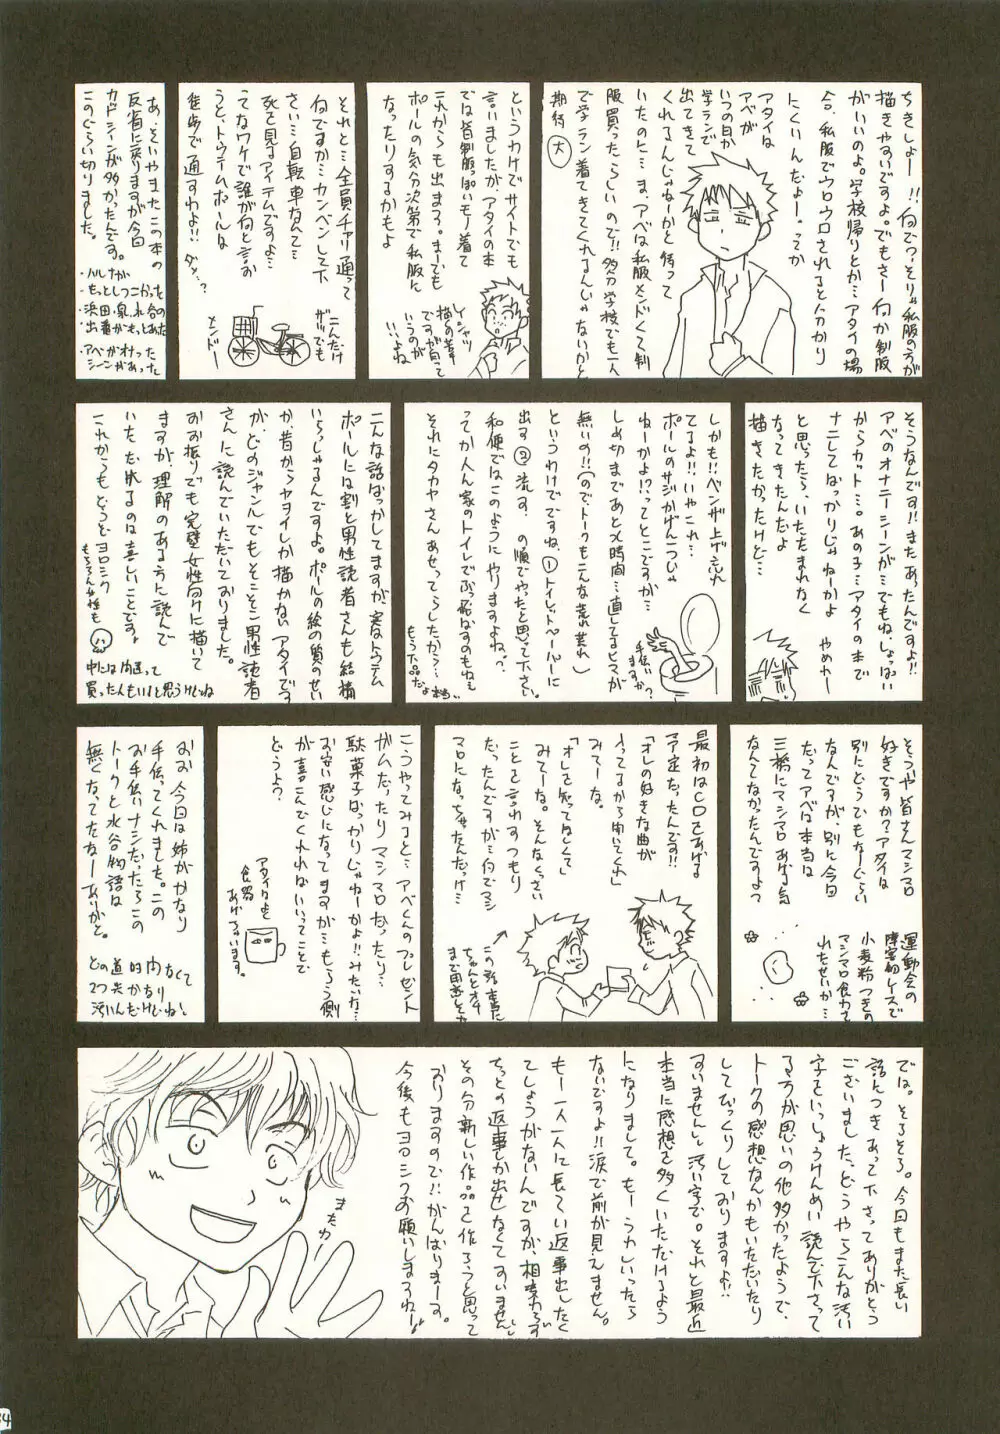 ちきしょー!!何で?そりゃ私服の方が
描きやすいですよ。でもさー何か制服
がいいのよ。学校帰りとか…アタイの場
合、私服でウロウロされるとんかり
にくいんだよー。っつか
アタイは
アベが
いつの日か
学ランで
出てきて
くれんじゃねーかと待って
いたのに…ま、アベは私服メンドくて制
服買ったらしいので!!多分学校でも一人
で学ラン着てきてくれるんじゃないかと
期待大
というわけでサイトでも
言いましたがアタイの本
では皆制服っぽいモノ着て
これからも出ます。まーでも
ポールの気分次第で私服に
なったりするかもよ
Yシャツ
描くの
ですが
いうのが
!!よね
それと…全員チャリ通って
何ですか…カンベンして下
さい…自転車なんて…
死を見るアイテムですよ…
ってなワケで誰が何と言お
うと、トウテムポールは
徒歩で通すわよ!!ダメ…?
こんだけ
ザッでも
メンドー
あ、そいやまたこの本の
反省に戻りますが今回
カットシーンが多かったんです。
このぐらい切りました。
・ハルナが
もっとしつこかった
・浜田・泉・水谷の
出番がもっとあった
・アベがオナった
シーンがあった
そうなんです!!またあったんですよ!!
アベのオナニーシーンが…でもね、しょっぱい
からカット…。あの子…アタイの本で
ナニしてばっかりじゃねーかよ
と思ったら、いたたまれなく
なってきたんだよ
描きたかったけど…
やめれー
しかも!!ベンザ上げ忘れ
てるよ!!いやこれ…
ポールのサジかげん一つじゃ
ねーかよ!?ってところですが…
しめ切まであと×時間…直してるヒマが
無いの!!(ので、トークもこんな荒れ荒れ)
というわけですね、①トイレットペーパーに
出す②流す。の順でやったと思って下さい。
和便ではこのようにやりますよね?
ってか人ん家のトイレでぶっ放なすのもねぇ
それにタカヤさんあせってらしたから…
もう下品だよ本当
手伝い
ますか?
こんな話ばっかしてますが、実はトウテム
ポールには割と男性読者さんも結構
いらっしゃるんですよ。ポールの絵の質のせい
か、昔からヤヲイしか描かないアタイです
が、どのジャンルでもそこそこ男性読者
さんに読んでいただいておりました。
おお振りでも完璧女性向けに描いて
ますが、理解のある方に読んで
いただけるのは喜しいことです。
これからもどうぞヨロシク
もちろん女性も
中には間違って
買ったんもいると思うけどね
そういや皆さんマシマロ
好きですか?アタイは
別にどうでもなーぐらい
なんですが、別に今回
だってアベは本当は
三橋にマシマロあげる気
なんてなかったんですよっ
運動会の
障害物レースで
小麦粉つきの
マシマロ食わされ
れたせいか…
最初はCDをあげる
予定だったんです!!
「オレの好きな曲が
入ってるから聞いてくれ」
みてーな。
「オレを知ってほしくて」
みてーな。そんなくっさい
ことを言わすつもり
だったんですが…何でマシ
マロになっちゃったんだっけ…
この話本当に
ちゃんとオチ
まで用意してた
こうやってみると…アベくんのプレゼント
ガムだったりマシマロだったり…
駄菓子ばっかりじゃねーかよ!!みたいな…
お安い感じになってますが…もらう側
が喜こんでくれればいいってことで
どうよ?
アタイはよく
食器
あげちゃいます。
おお、今回は姉がかなり
手伝ってくれました。この
お手伝いナシだったらこの
トークと水谷物語は
無くなってたなーありがと。
どの道時間なくて
2つ共かなり
汚いんだけどね
では。そろそろ。今回もまた長い
話につきあって下さってありがとう
ございました。どうやらこんな汚い
字をいっしょうけんめい読んで下さって
る方が思いの他多かったようで、
トークの感想なんかもいただいたり
してびっくりしておりますよ!!
すいません、汚い字で。それと最近
本当に感想を多くいただけるよう
になりまして。もーうれしいったら
ないですよ!!涙で前が見えません。
もー一人一人に長ーい返事出したく
てしょうがないんですが、相変わらず
ちっとの返事しか出せなくてすいません。
その分新しい作品を作ろうと思って
おりますので!!がんばりまーす。
今後もヨロシクお願いしまーすねー!
またねー
34